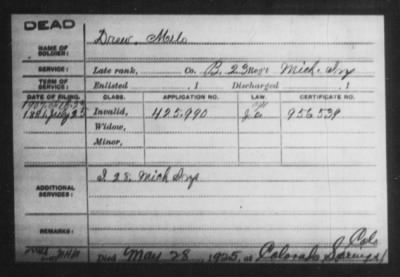 DEAD
NAME OF SOLDIER: Drew, Milo
SERVICE: Late rank, Co. B, 23 Reg't Mich. Inf
TERM OF SERVICE: Enlisted , 1 Discharged , 1
DATE OF FILING. CLASS. APPLICATION NO. LAW. CERTIFICATE NO.
1881 July 25 Invalid, 425.990 956538
Widow,
Minor,
ADDITIONAL SERVICES: I 28 Mich Inf
REMARKS:
Colo
Died May 28, 1925, at Colorado Springs